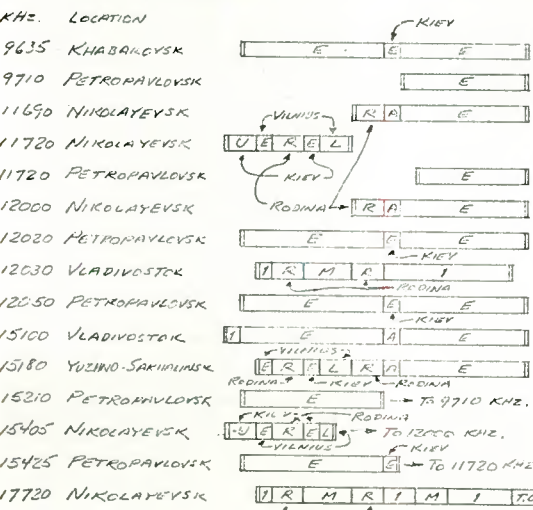 KHz. LOCATION
KIEV
9635 KHABAROVSK E E E
9710 PETROPAVLOVSK E
11690 NIKOLAYEVSK VILNIUS R A E
11720 NIKOLAYEVSK U E R E L
KIEV
11720 PETROPAVLOVSK E
12000 NIKOLAYEVSK RODINA R A E
12020 PETROPAVLOVSK E E E
KIEV
12030 VLADIVOSTOK 1 R M R 1
RODINA
12050 PETROPAVLOVSK E E E
KIEV
15100 VLADIVOSTOK 1 E A E
VILNIUS
15180 YUZHNO-SAKHALINSK E R E L R A E
RODINA KIEV RODINA
15210 PETROPAVLOVSK E TO 9710 KHZ.
KIEV RODINA
15405 NIKOLAYEVSK U E R E L TO 12000 KHZ.
VILNIUS
KIEV
15425 PETROPAVLOVSK E E TO 11720 KHZ
17720 NIKOLAYEVSK 1 R M R 1 M 1